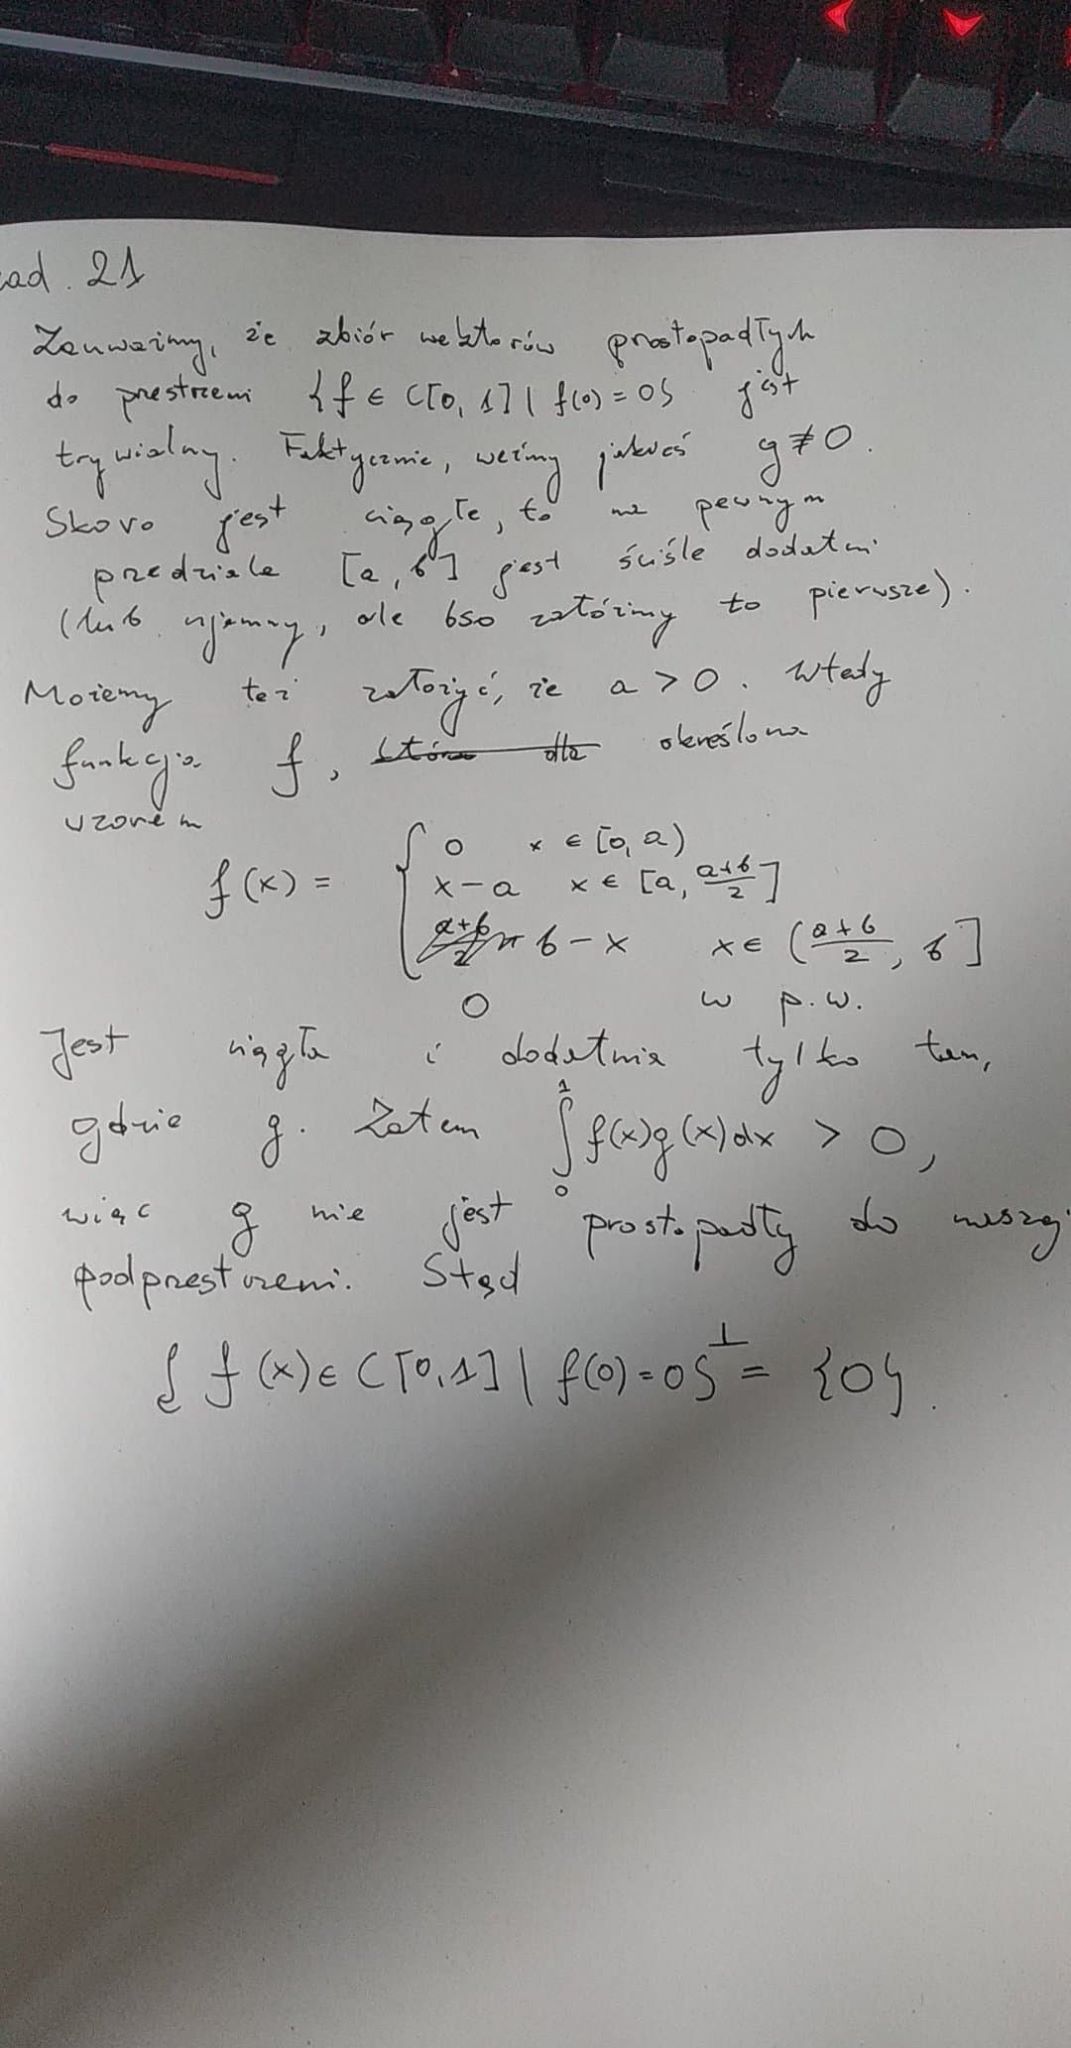 zad. 21
Zauważmy, że zbiór wektorów prostopadłych
do prestrzeni {f ∈ C[0, 1] | f(0) = 0} jest
trywialny. Faktycznie, weźmy jakieś g ≢ 0.
Skoro jest ciągłe, to na pewnym
przedziale [a, b] jest ściśle dodatni
(lub ujemny, ale bso załóżmy to pierwsze).
Możemy też założyć, że a > 0. Wtedy
funkcja f, określona
wzorem
f(x) = { 0 x ∈ [0, a)
x - a x ∈ [a, (a+b)/2]
b - x x ∈ ((a+b)/2, b]
0 w p.w.
Jest ciągła i dodatnia tylko tam,
gdzie g. Zatem ∫₀¹ f(x)g(x)dx > 0,
więc g nie jest prostopadły do naszej
podprzestrzeni. Stąd
{ f(x) ∈ C[0,1] | f(0) = 0}^⊥ = {0}.